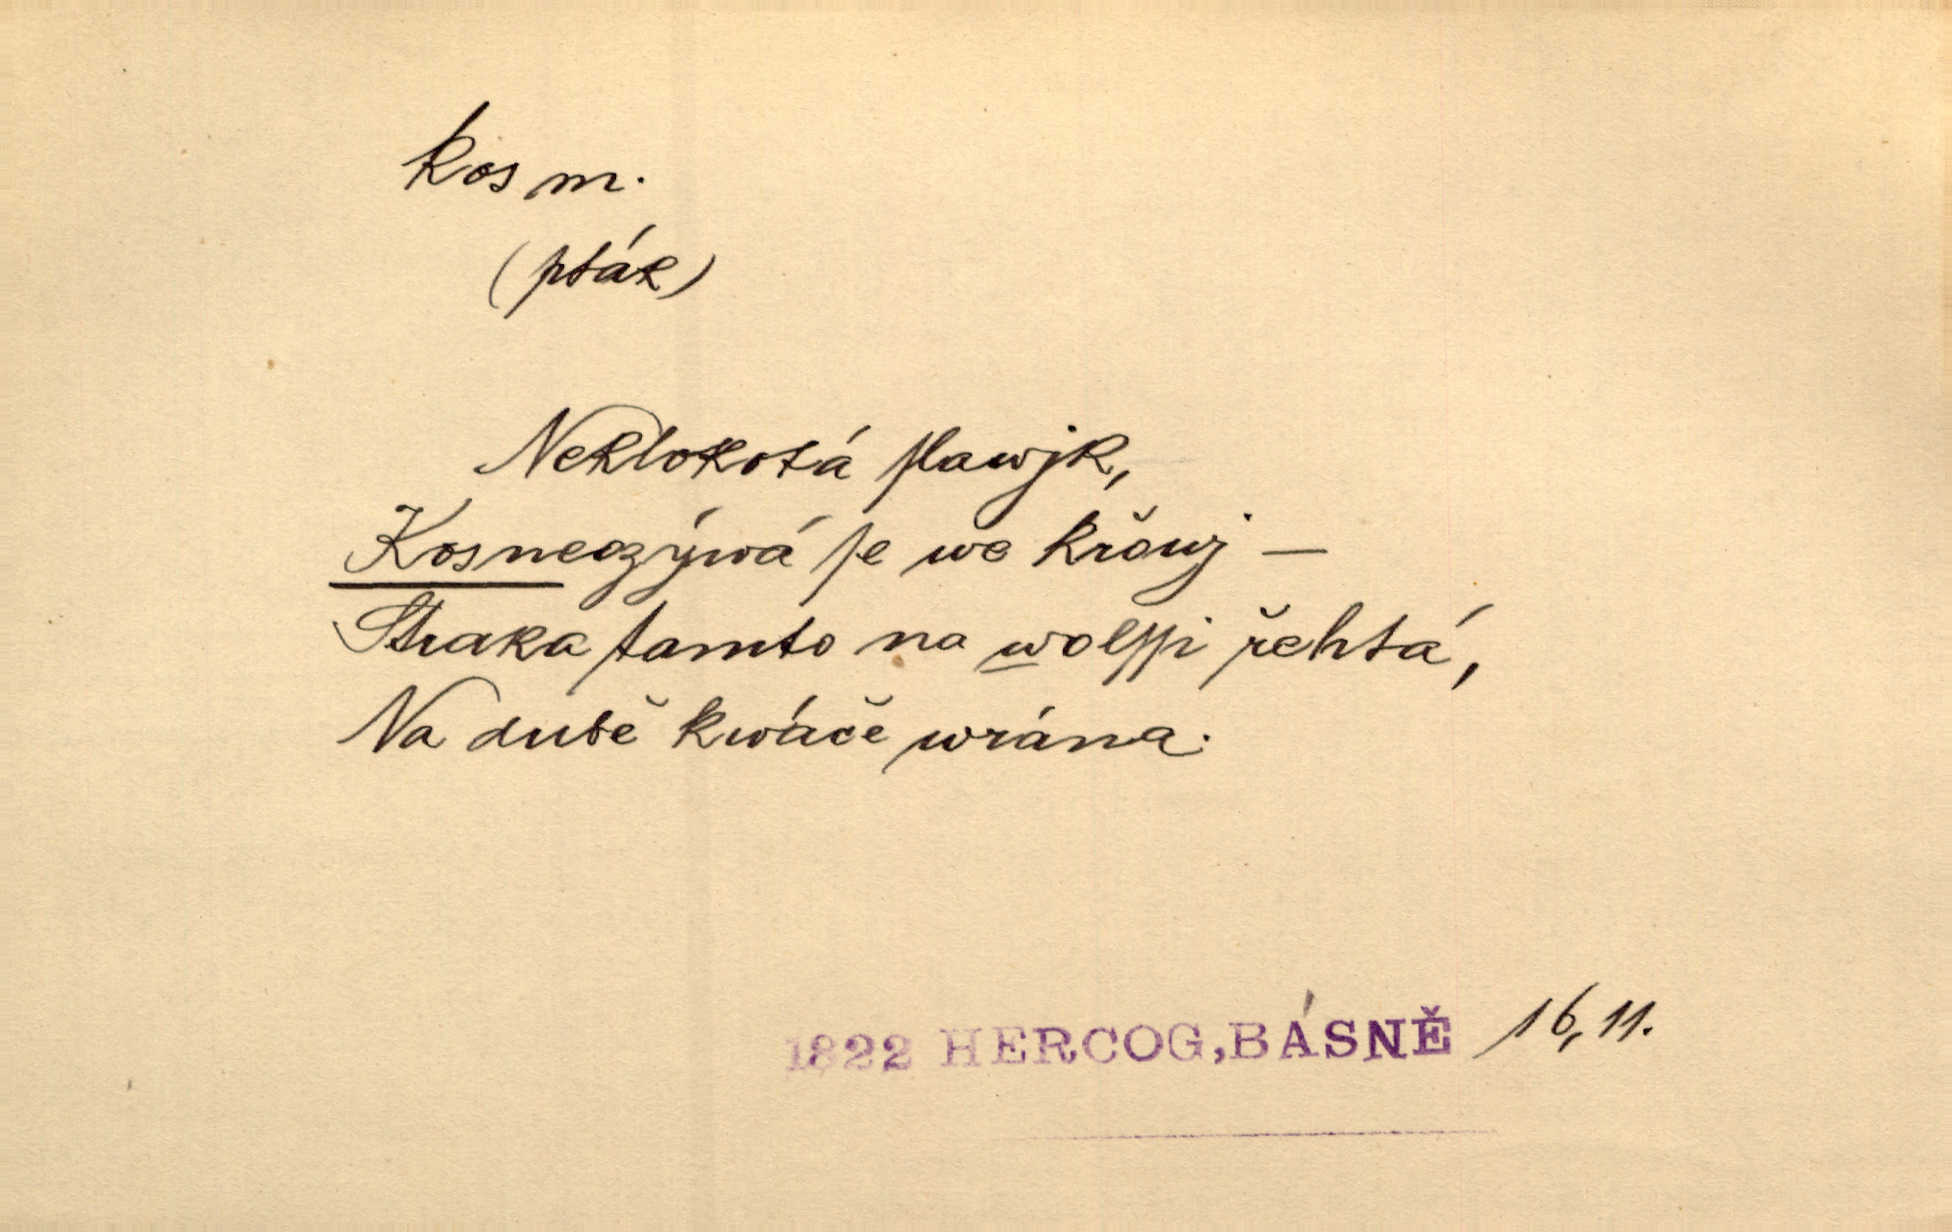 kos m.
(pták)
Neklokotá ſlawjk,
Kosneozýwá ſe we křowj —
Straka tamto na wolſſi řehtá,
Na dubě kwáče wrána.
1822 HERCOG, BÁSNĚ 16, 11.